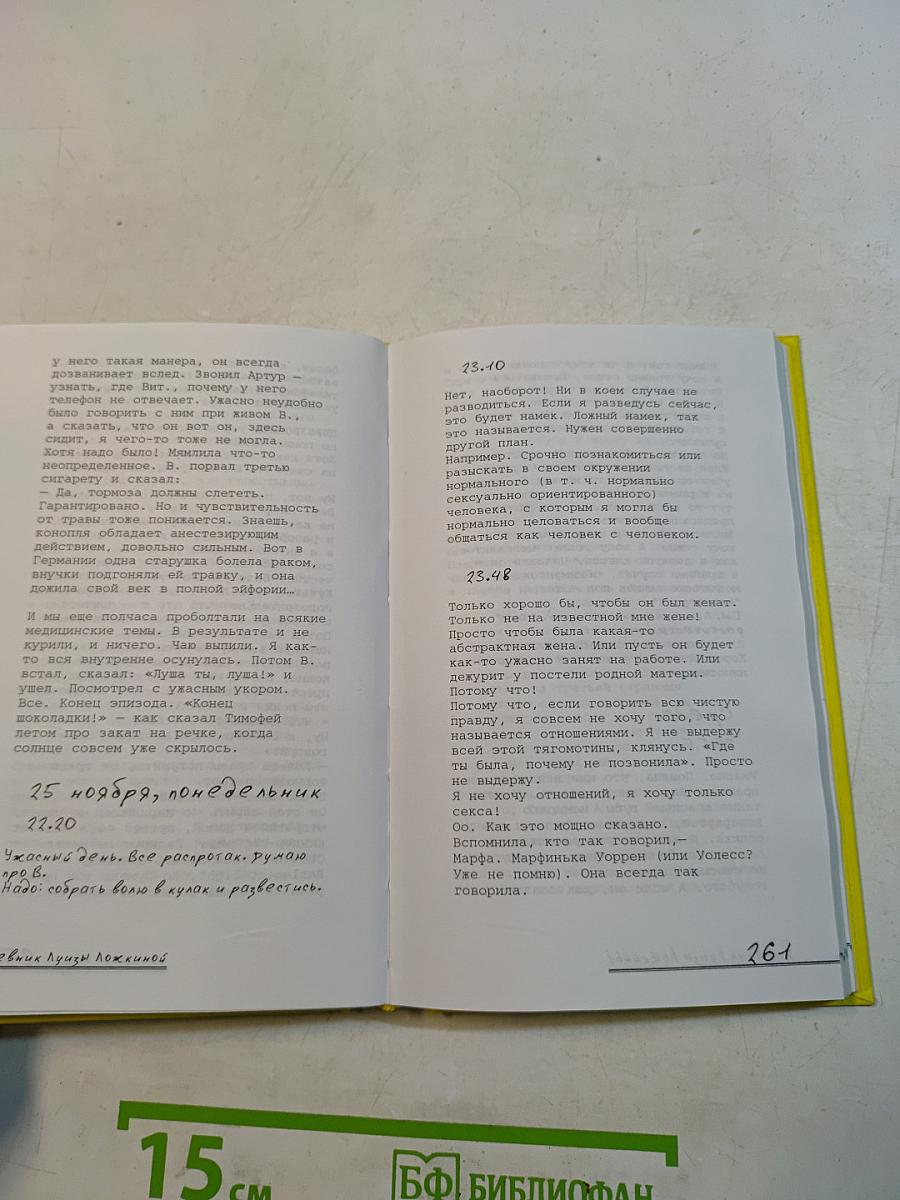 у него такая манера, он всегда
дозванивает вслед. Звонил Артур —
узнать, где Вит., почему у него
телефон не отвечает. Ужасно неудобно
было говорить с ним при живом В.,
а сказать, что он вот он, здесь
сидит, я чего-то тоже не могла.
Хотя надо было! Мямлила что-то
неопределенное. В. порвал третью
сигарету и сказал:
— Да, тормоза должны слететь.
Гарантировано. Но и чувствительность
от травы тоже понижается. Знаешь,
конопля обладает анестезирующим
действием, довольно сильным. Вот в
Германии одна старушка болела раком,
внучки подгоняли ей травку, и она
дожила свой век в полной эйфории…
И мы еще полчаса проболтали на всякие
медицинские темы. В результате и не
курили, и ничего. Чаю выпили. Я как-
то вся внутренне осунулась. Потом В.
встал, сказал: «Луша ты, луша!» и
ушел. Посмотрел с ужасным укором.
Все. Конец эпизода. «Конец
шоколадки!» — как сказал Тимофей
летом про закат на речке, когда
солнце совсем уже скрылось.
25 ноября, понедельник
22.20
Ужасный день. Все распротак. Думаю
про В.
Надо: собрать волю в кулак и развестись.
евник Луизы Ложкиной
23.10
Нет, наоборот! Ни в коем случае не
разводиться. Если я разведусь сейчас,
это будет намек. Ложный намек, так
это называется. Нужен совершенно
другой план.
Например. Срочно познакомиться или
разыскать в своем окружении
нормального (в т. ч. нормально
сексуально ориентированного)
человека, с которым я могла бы
нормально целоваться и вообще
общаться как человек с человеком.
23.48
Только хорошо бы, чтобы он был женат.
Только не на известной мне жене!
Просто чтобы была какая-то
абстрактная жена. Или пусть он будет
как-то ужасно занят на работе. Или
дежурит у постели родной матери.
Потому что!
Потому что, если говорить всю чистую
правду, я совсем не хочу того, что
называется отношениями. Я не выдержу
всей этой тягомотины, клянусь. «Где
ты была, почему не позвонила». Просто
не выдержу.
Я не хочу отношений, я хочу только
секса!
Оо. Как это мощно сказано.
Вспомнила, кто так говорил,—
Марфа. Марфинька Уоррен (или Уолесс?
Уже не помню). Она всегда так
говорила.
261
15 см
БФ БИБЛИОФАН